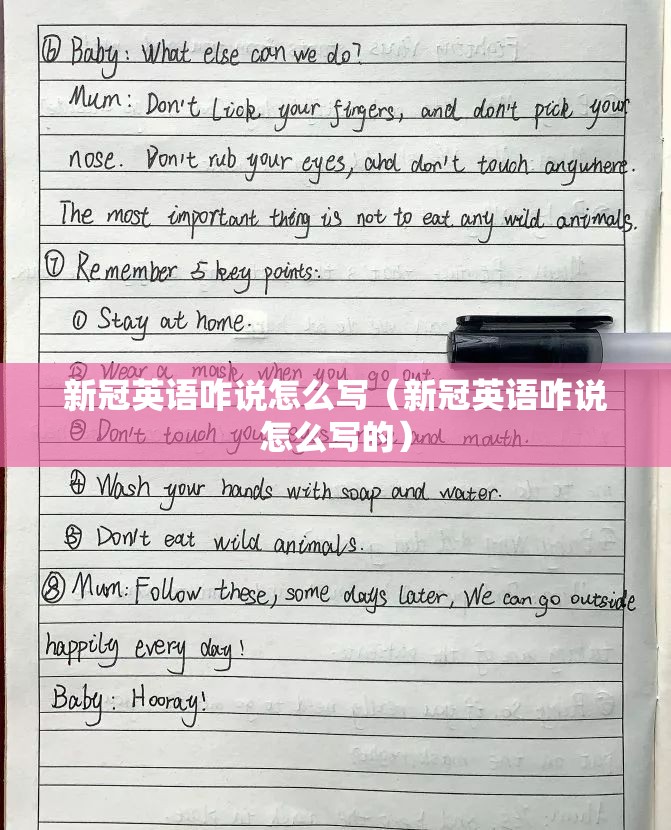 ⑥ Baby: What else can we do?
Mum: Don't Lick your fingers, and don't pick your
nose. Don't rub your eyes, and don't touch anywhere.
The most important thing is not to eat any wild animals.
⑦ Remember 5 key points:
① Stay at home.
② Wear a mask when you go out.
新冠英语咋说怎么写（新冠英语咋说
怎么写的）
③ Don't touch your eyes and mouth.
④ Wash your hands with soap and water.
⑤ Don't eat wild animals.
⑧ Mum: Follow these, some days later, We can go outside
happily every day!
Baby: Hooray!